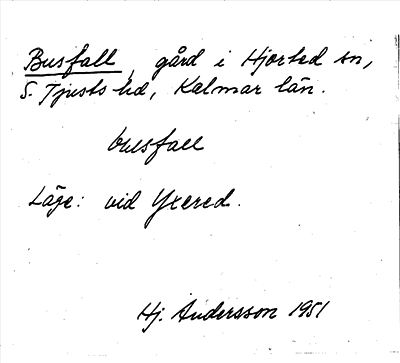 Busfall, gård i Hjorted sn,
S. Tjusts hd, Kalmar län.
busfall
Läge: vid Yxered.
Hj. Andersson 1951